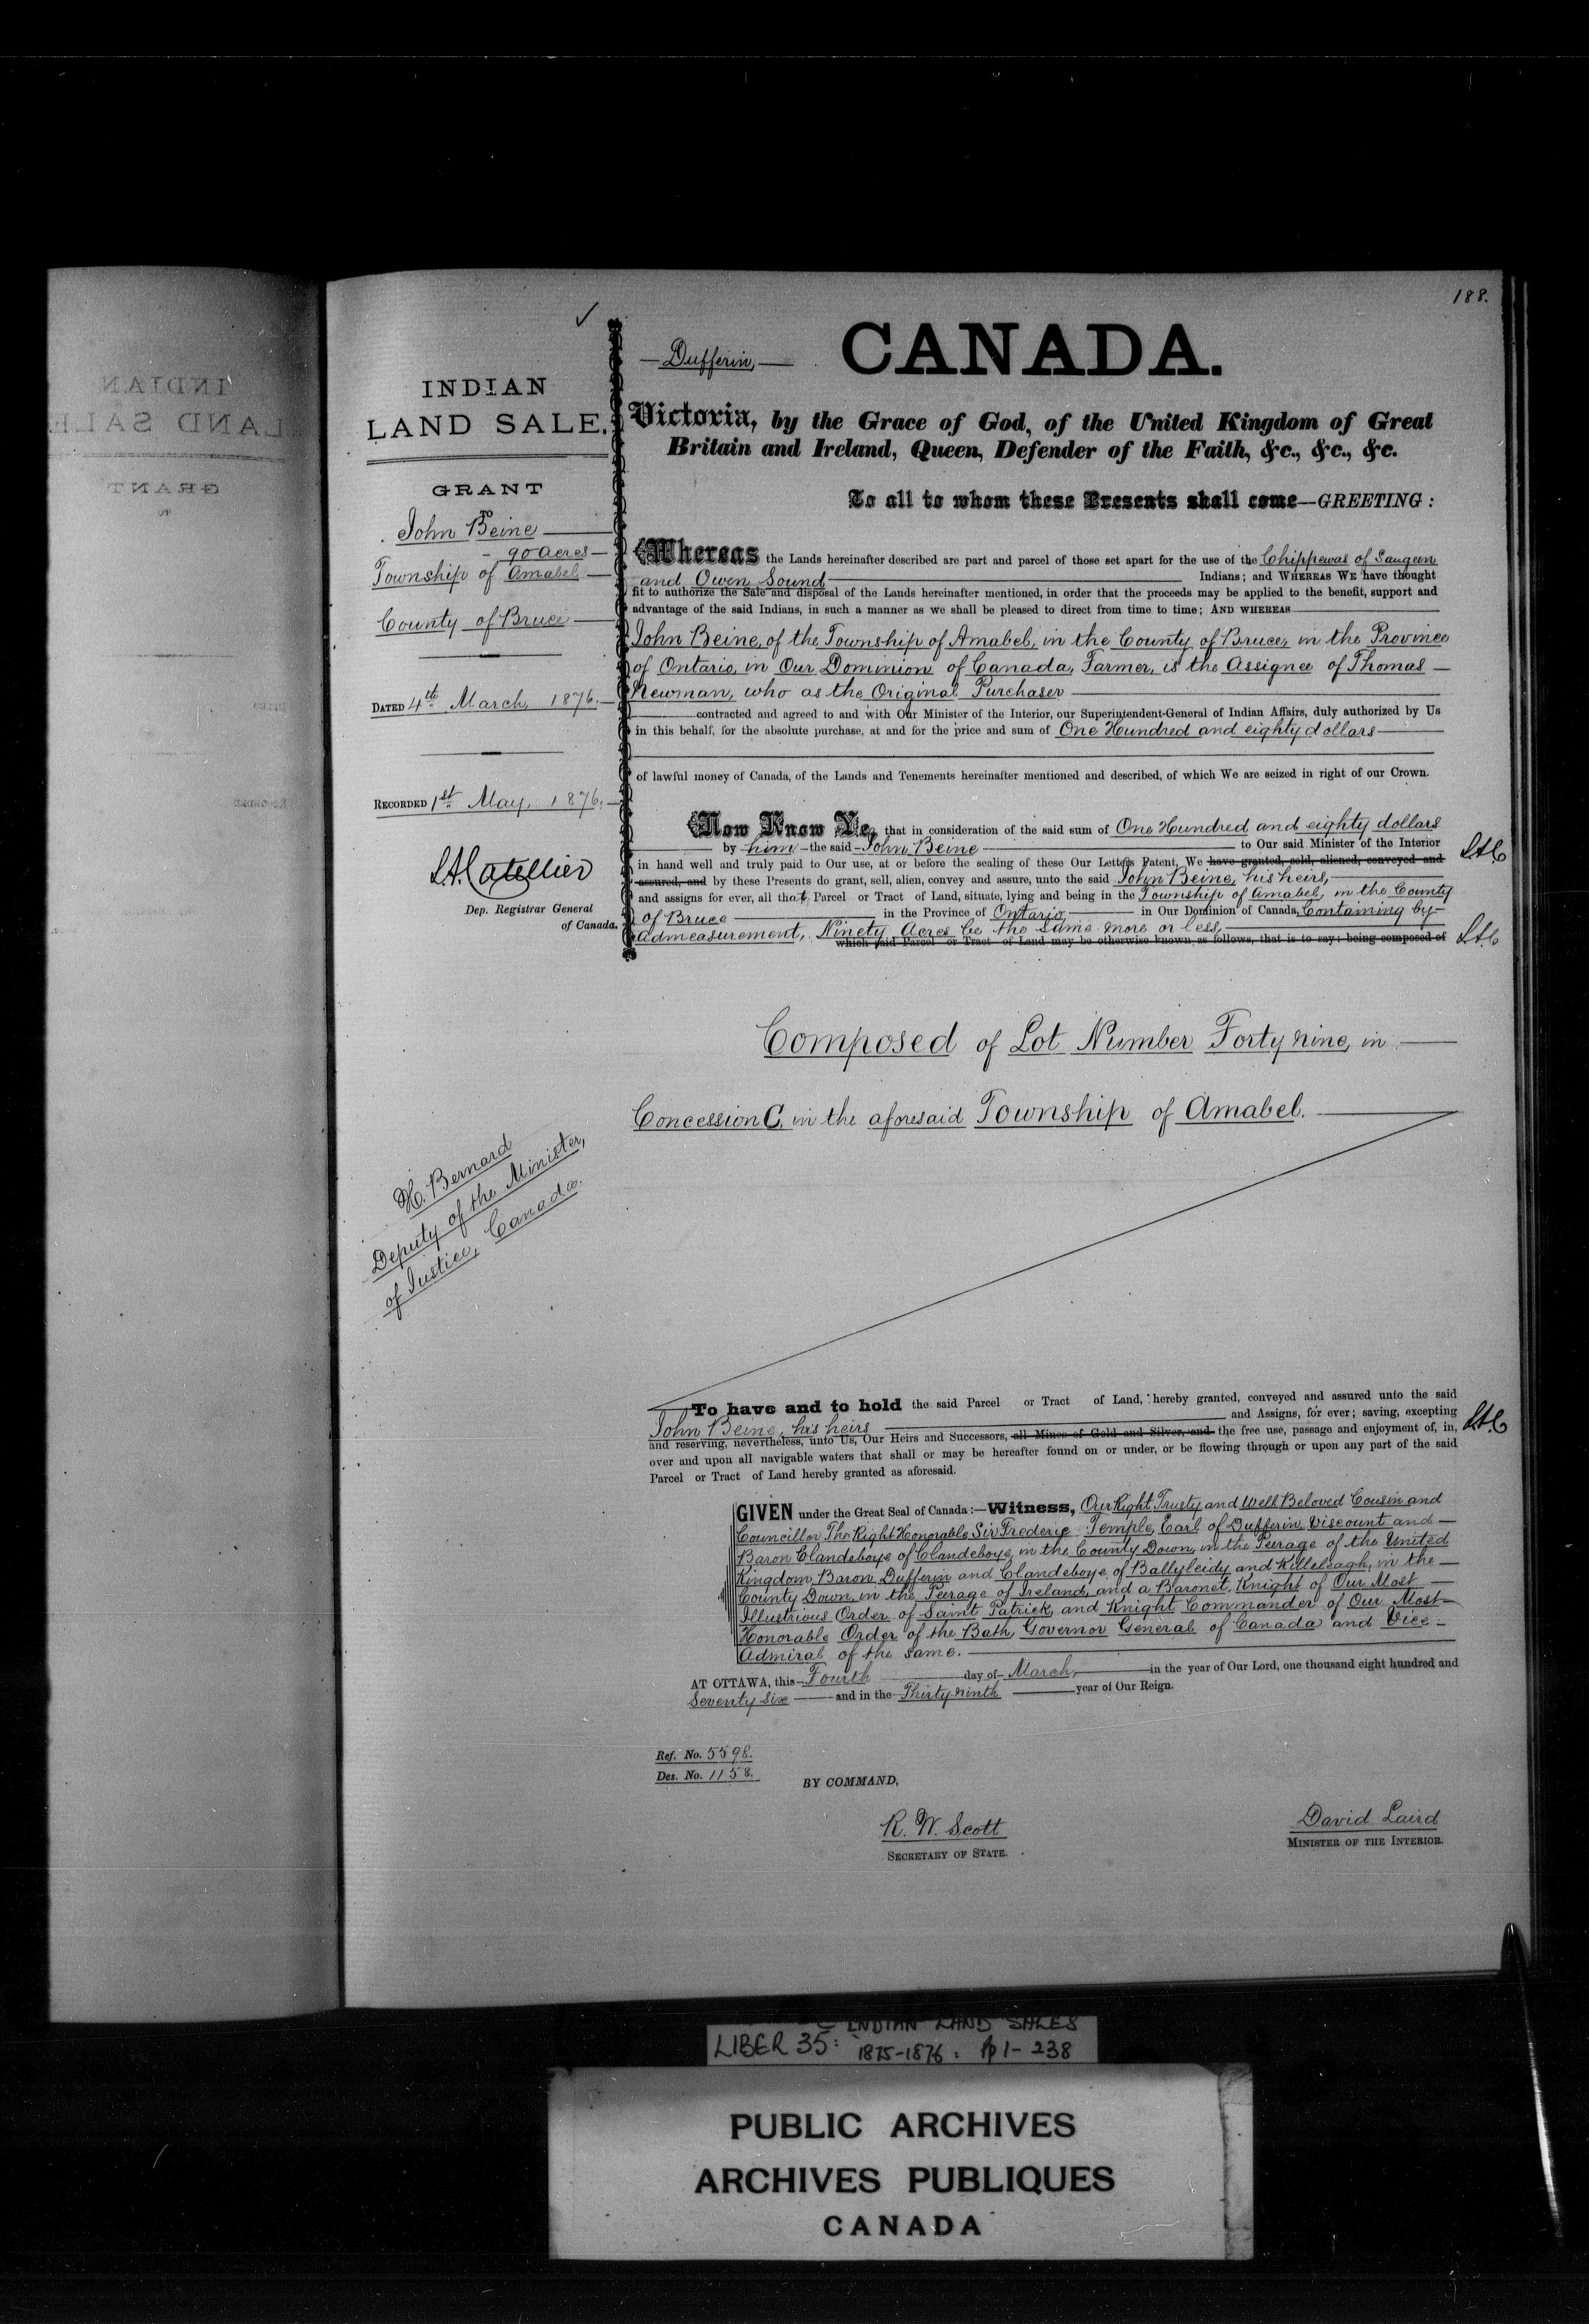 188.
INDIAN
LAND SALE.
GRANT
TO
John Beine
90 acres
Township of Amabel
County of Bruce
DATED 4th March, 1876.
RECORDED 1st May, 1876.
Dep. Registrar General
of Canada.
H. Bernard
Deputy of the Minister,
of Justice, Canada.
Dufferin,
CANADA.
Victoria, by the Grace of God, of the United Kingdom of Great
Britain and Ireland, Queen, Defender of the Faith, &c., &c., &c.
To all to whom these Presents shall come—GREETING:
Whereas the Lands hereinafter described are part and parcel of those set apart for the use of the Chippewas of Saugeen
and Owen Sound Indians; and WHEREAS WE have thought
fit to authorize the Sale and disposal of the Lands hereinafter mentioned, in order that the proceeds may be applied to the benefit, support and
advantage of the said Indians, in such a manner as we shall be pleased to direct from time to time; AND WHEREAS
John Beine, of the Township of Amabel, in the County of Bruce, in the Province
of Ontario, in Our Dominion of Canada, Farmer, is the Assignee of Thomas
Newman, who as the Original Purchaser
contracted and agreed to and with Our Minister of the Interior, our Superintendent-General of Indian Affairs, duly authorized by Us
in this behalf, for the absolute purchase, at and for the price and sum of One Hundred and eighty dollars
of lawful money of Canada, of the Lands and Tenements hereinafter mentioned and described, of which We are seized in right of our Crown.
Now Know Ye, that in consideration of the said sum of One Hundred and eighty dollars
by him the said John Beine to Our said Minister of the Interior
in hand well and truly paid to Our use, at or before the sealing of these Our Letters Patent, We have granted, sold, aliened, conveyed and
assured, and by these Presents do grant, sell, alien, convey and assure, unto the said John Beine, his heirs,
and assigns for ever, all that Parcel or Tract of Land, situate, lying and being in the Township of Amabel, in the County
of Bruce in the Province of Ontario in Our Dominion of Canada, Containing by
admeasurement, Ninety Acres be the same more or less,
which said Parcel or Tract of Land may be otherwise known as follows, that is to say: being composed of
Composed of Lot Number Forty nine, in
Concession C, in the aforesaid Township of Amabel.
To have and to hold the said Parcel or Tract of Land, hereby granted, conveyed and assured unto the said
John Beine, his heirs and Assigns, for ever; saving, excepting
and reserving, nevertheless, unto Us, Our Heirs and Successors, all Mines of Gold and Silver, and the free use, passage and enjoyment of, in,
over and upon all navigable waters that shall or may be hereafter found on or under, or be flowing through or upon any part of the said
Parcel or Tract of Land hereby granted as aforesaid.
GIVEN under the Great Seal of Canada:—Witness, Our Right Trusty and Well Beloved Cousin and
Councillor The Right Honorable Sir Frederic Temple, Earl of Dufferin, Viscount and
Baron Clandeboye of Clandeboye, in the County Down, in the Peerage of the United
Kingdom, Baron Dufferin and Clandeboye of Ballyleidy and Killeleagh, in the
County Down, in the Peerage of Ireland, and a Baronet, Knight of Our Most
Illustrious Order of Saint Patrick, and Knight Commander of Our Most
Honorable Order of the Bath, Governor General of Canada and Vice
Admiral of the same.
AT OTTAWA, this Fourth day of March, in the year of Our Lord, one thousand eight hundred and
Seventy six and in the Thirty ninth year of Our Reign.
Ref. No. 5598.
Des. No. 1158.
BY COMMAND,
R. W. Scott
SECRETARY OF STATE.
David Laird
MINISTER OF THE INTERIOR.
INDIAN LAND SALES
LIBER 35: 1875-1876: pp 1-238
PUBLIC ARCHIVES
ARCHIVES PUBLIQUES
CANADA